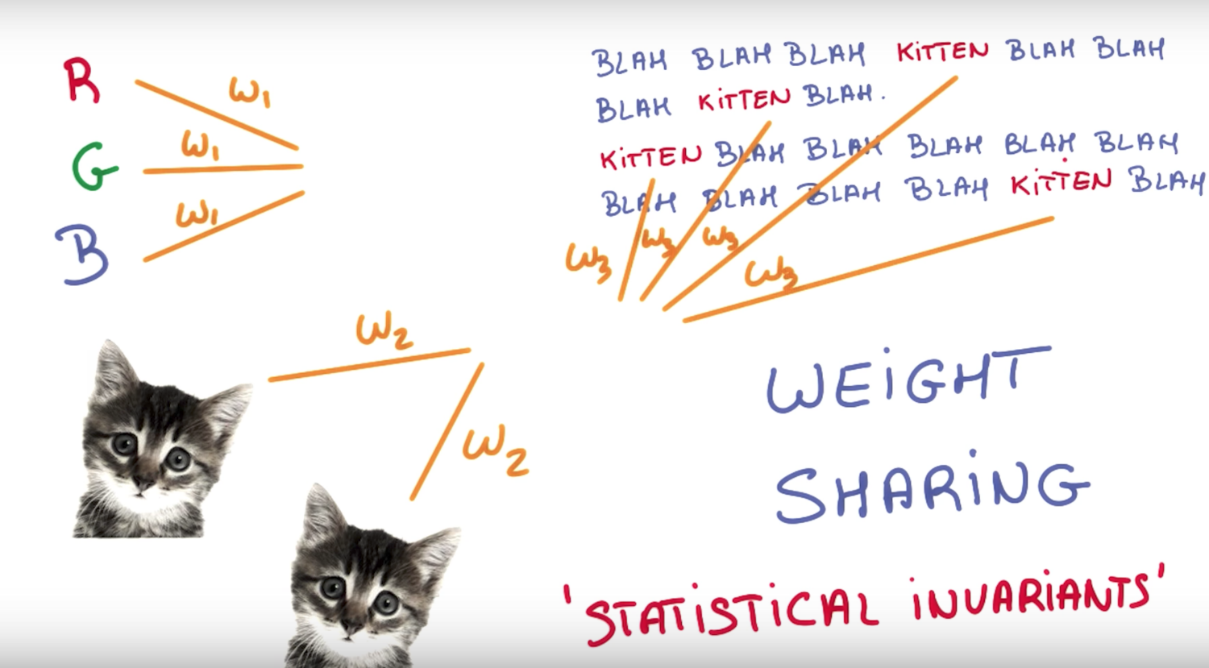 R
ω1
G
ω1
B
ω1
BLAH BLAH BLAH KiTTEN BLAH BLAH
BLAH KiTTEN BLAH.
KiTTEN BLAH BLAH BLAH BLAH BLAH
BLAH BLAH BLAH BLAH KiTTEN BLAH
ω3 ω3 ω3 ω3
ω2
ω2
WEiGHT
SHARiNG
'STATiSTiCAL iNVARiANTS'